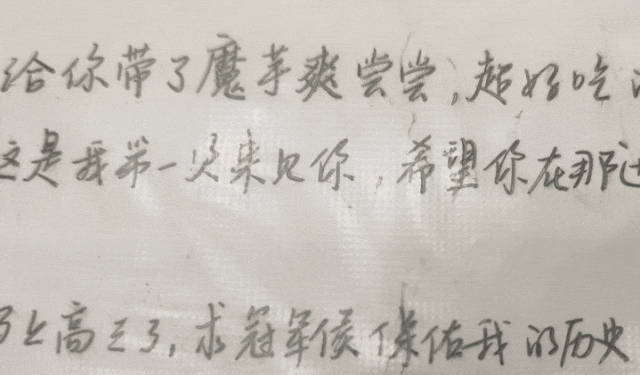 给你带了魔芋爽尝尝,超好吃
这是我第一次来见你,希望你在那边
上高三了,求冠军侯保佑我的历史